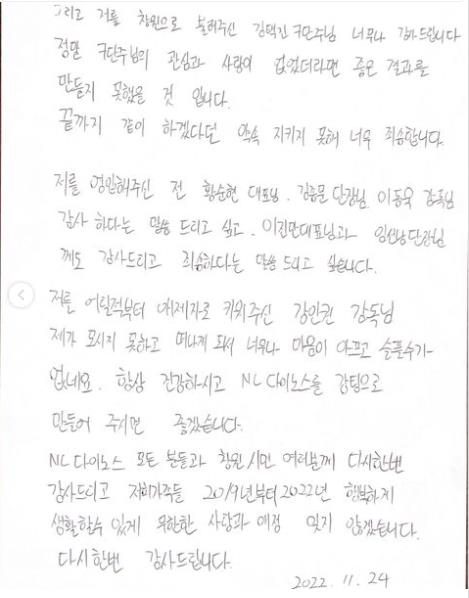 그리고 저를 창원으로 불러주신 김택진 구단주님 너무나 감사드립니다
정말 구단주님의 관심과 사랑이 없었더라면 좋은 결과를
만들지 못했을 것 입니다.
끝까지 같이 하겠다던 약속 지키지 못해 너무 죄송합니다.
저를 영입해주신 전 황순현 대표님, 김종문 단장님 이동욱 감독님
감사 하다는 말씀 드리고 싶고, 이진만대표님과 임선남단장님
께도 감사드리고 죄송하다는 말씀 드리고 싶습니다.
저를 어릴적부터 애제자로 키워주신 강인권 감독님
제가 모시지 못하고 떠나게 되서 너무나 마음이 아프고 슬플수가
없네요. 항상 건강하시고 NC 다이노스를 강팀으로
만들어 주시면 좋겠습니다.
NC 다이노스 모든 분들과 창원 시민 여러분께 다시한번
감사드리고 저희가족들 2019년부터 2022년 행복하게
생활할수 있게 무한한 사랑과 애정 잊지 않겠습니다.
다시한번 감사드립니다.
2022. 11. 24